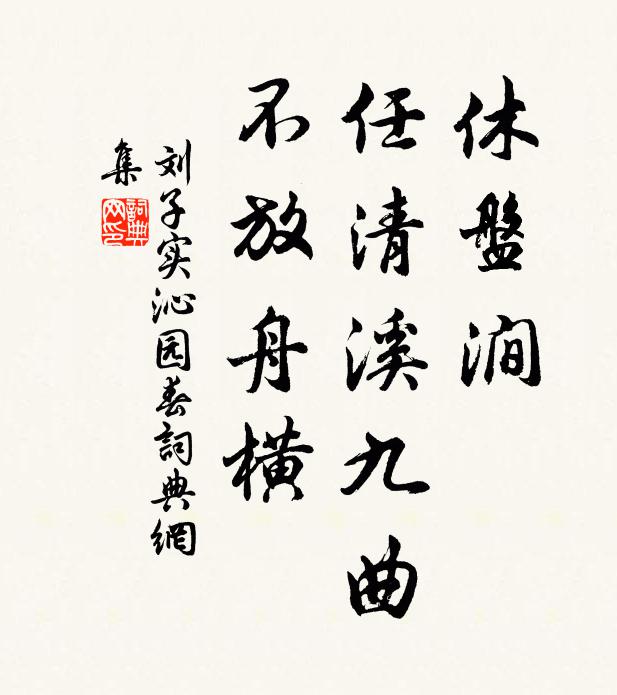 休盤澗
任清溪九曲
不放舟橫
刘子实沁园春詞典網
集
詞典
网印